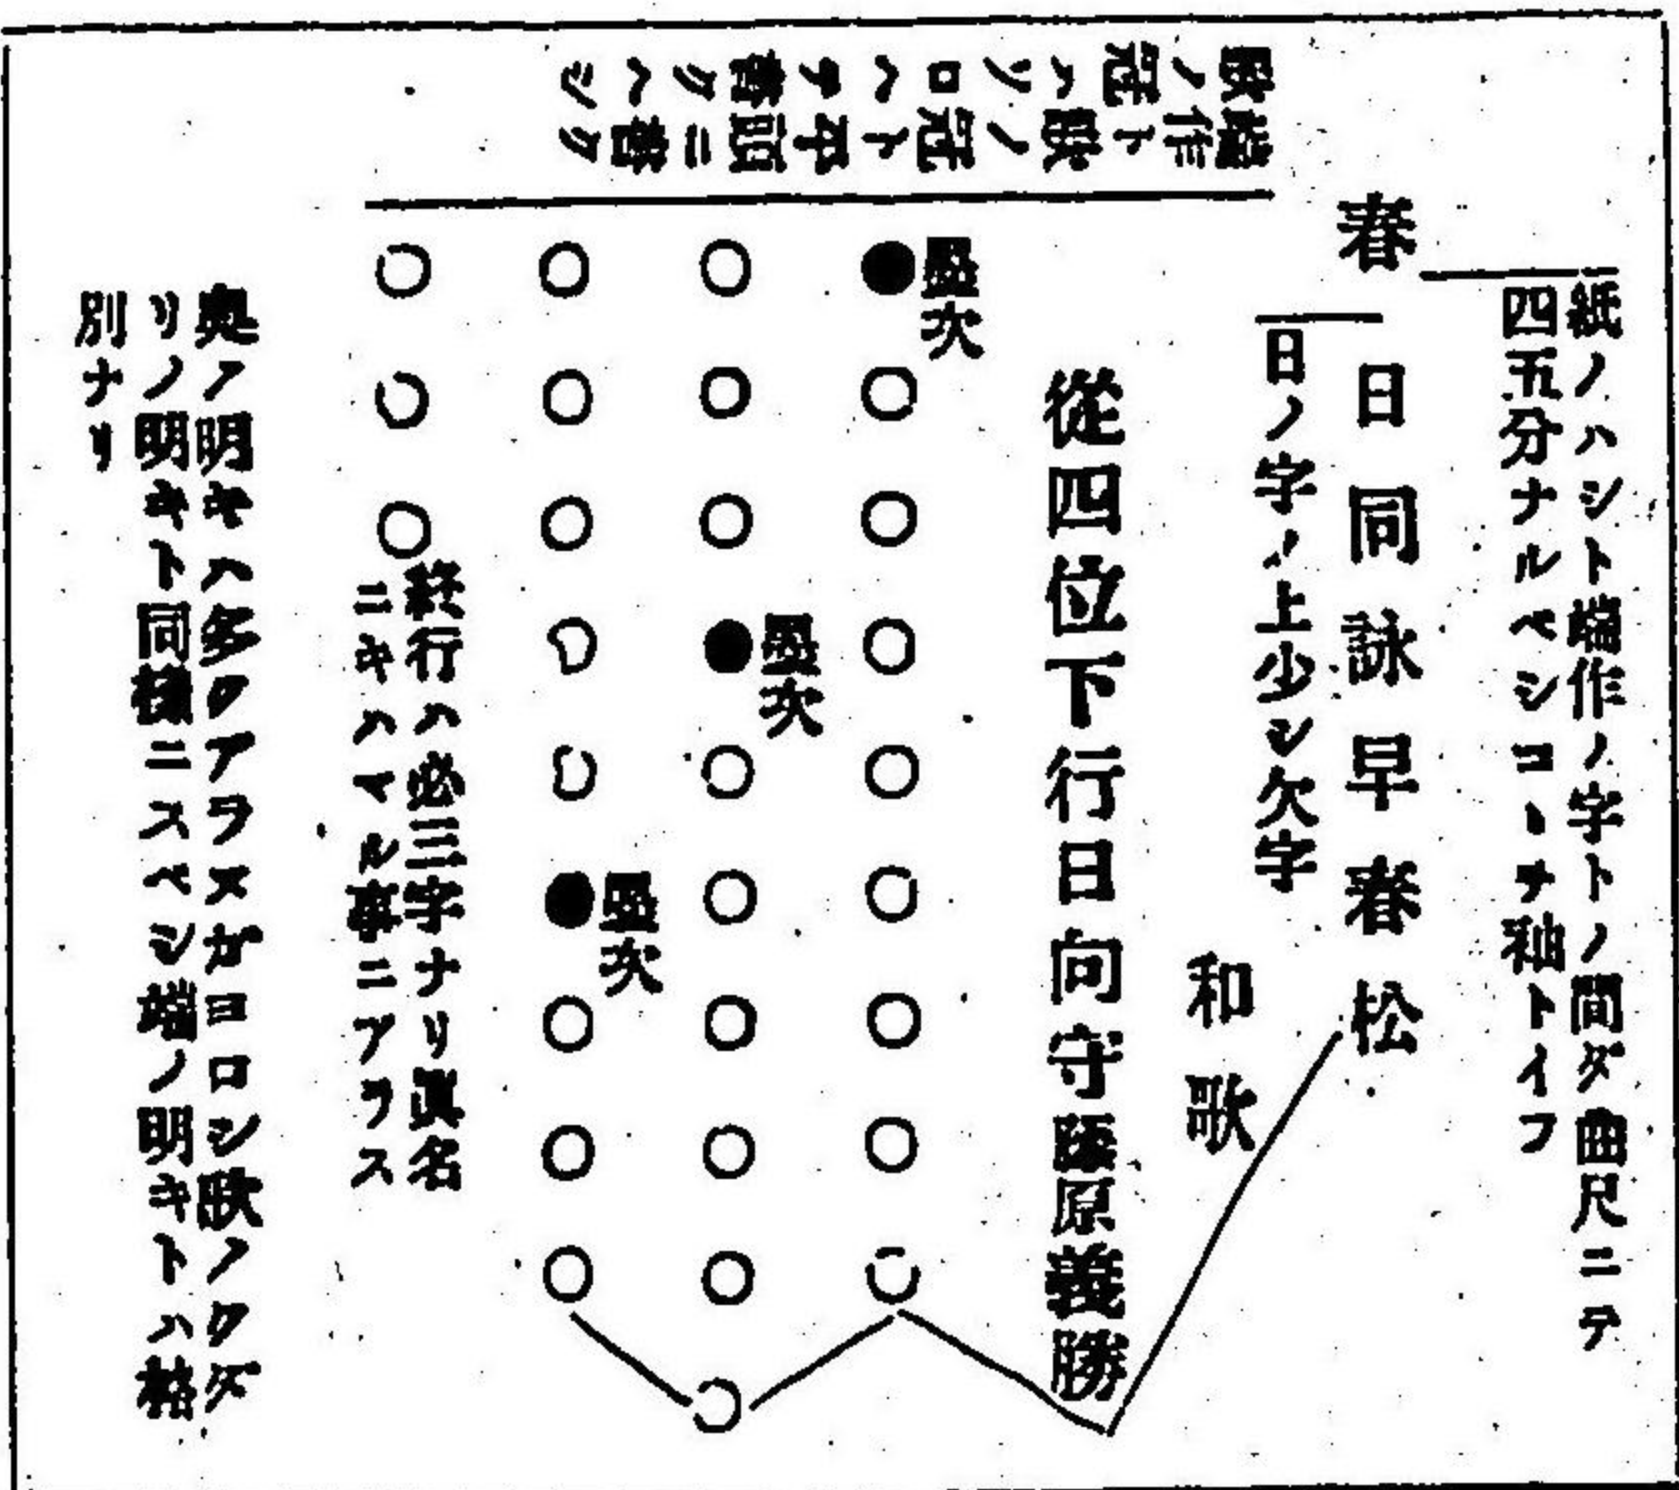 端作ト歌ノ冠ト平頭ニ書ク
歌ノ冠ハソロヘテ書クヘシ
紙ノハシト端作ノ字トノ間ダ曲尺ニテ
四五分ナルベシコヽヲ袖トイフ
春日同詠早春松
日ノ字ノ上少シ欠字
和歌
從四位下行日向守藤原義勝
墨次
墨次
墨次
終行ハ必三字ナリ眞名
ニキハマル事ニアラス
奥ノ明キハ多クアラヌガヨロシ歌ノクダ
リノ明キト同樣ニスベシ端ノ明キトハ格
別ナリ